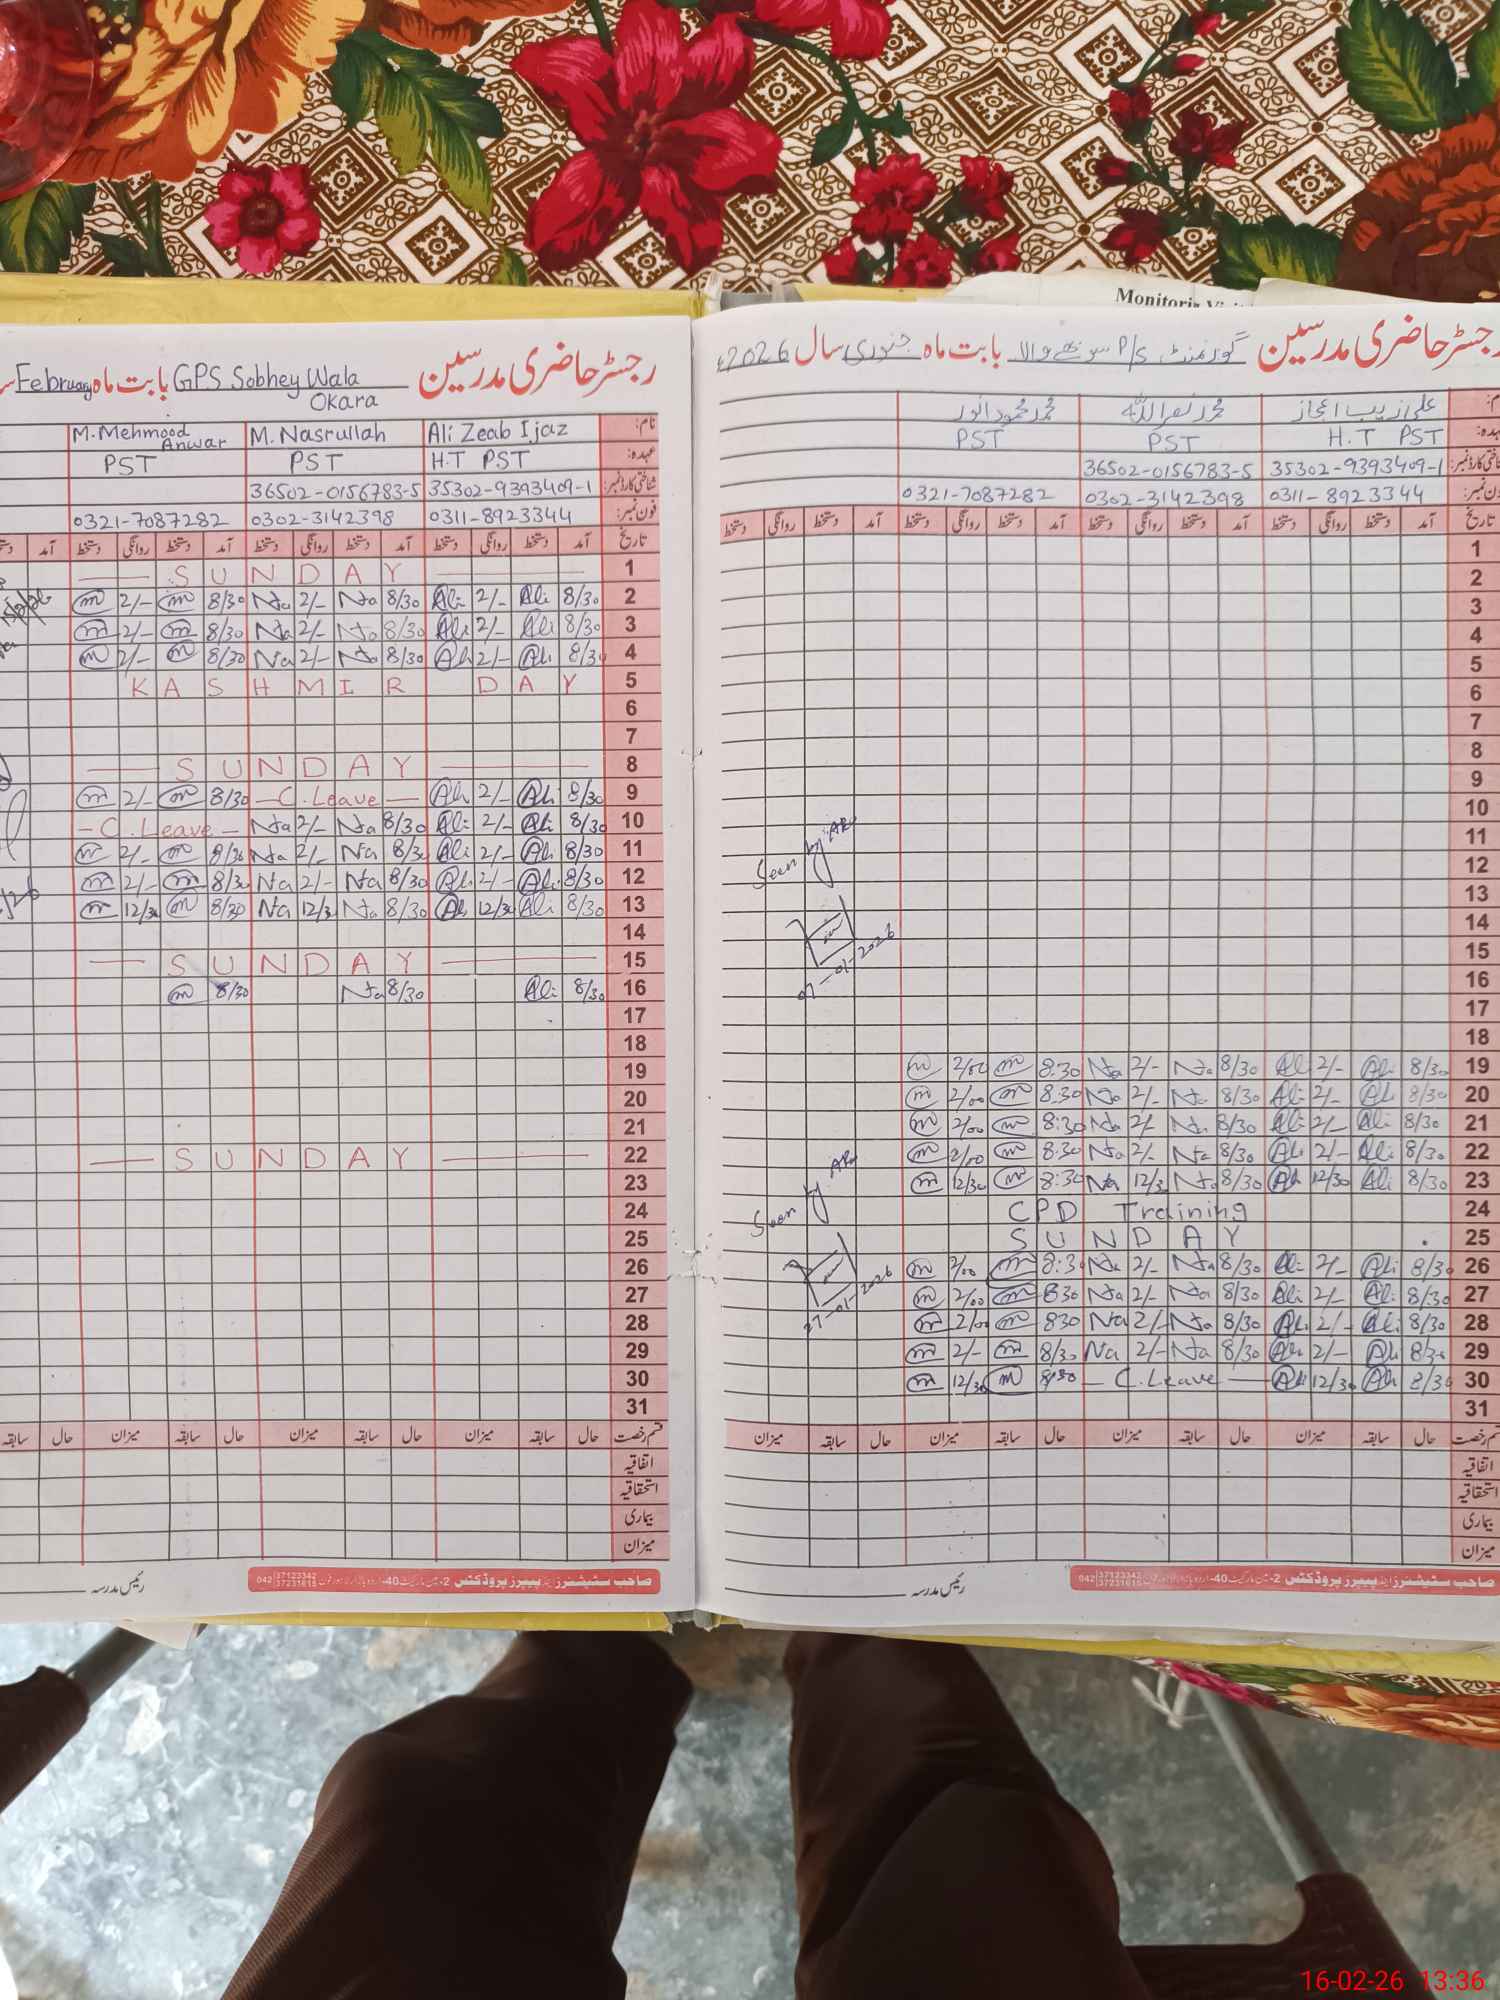 Monitori
رجسٹر حاضری مدرسین GPS Sobhey Wala Okara بابت ماہ February
نام: Ali Zeab Ijaz M. Nasrullah M. Mehmood Anwar
عہدہ: H.T PST PST PST
شناختی کارڈ نمبر: 35302-9393409-1 36502-0156783-5
فون نمبر: 0311-8923344 0302-3142398 0321-7087282
تاریخ آمد دستخط روانگی دستخط آمد دستخط روانگی دستخط آمد دستخط روانگی دستخط آمد
1 SUNDAY
2 8/30 Ali 2/- Ali 8/30 Na 2/- Na 8/30 m 2/- m
3 8/30 Ali 2/- Ali 8/30 Na 2/- Na 8/30 m 2/- m
4 8/30 Ali 2/- Ali 8/30 Na 2/- Na 8/30 m 2/- m
5 KASHMIR DAY
6
7
8 SUNDAY
9 8/30 Ali 2/- Ali C.Leave 8/30 m 2/- m
10 8/30 Ali 2/- Ali 8/30 Na 2/- Na C.Leave
11 8/30 Ali 2/- Ali 8/30 Na 2/- Na 8/30 m 2/- m
12 8/30 Ali 2/- Ali 8/30 Na 2/- Na 8/30 m 2/- m
13 8/30 Ali 12/30 Ali 8/30 Na 12/30 Na 8/30 m 12/30 m
14
15 SUNDAY
16 8/30 Ali 8/30 Na 8/30 m
17
18
19
20
21
22 SUNDAY
23
24
25
26
27
28
29
30
31
قسم رخصت حال سابقہ میزان حال سابقہ میزان حال سابقہ میزان حال سابقہ
اتفاقیہ
استحقاقیہ
بیماری
میزان
صاحب سٹیشنرز اینڈ پیپرز پروڈکٹس 2-مین مارکیٹ 40-اردو بازار لاہور فون 042 37123342 37231615
رئیس مدرسہ
رجسٹر حاضری مدرسین گورنمنٹ P/S سوبھے والا بابت ماہ جنوری سال 2026ء
علی ازیب اعجاز محمد نصراللہ محمد محمود انور
H.T PST PST PST
35302-9393409-1 36502-0156783-5
0311-8923344 0302-3142398 0321-7087282
تاریخ آمد دستخط روانگی دستخط آمد دستخط روانگی دستخط آمد دستخط روانگی دستخط آمد دستخط روانگی دستخط
1
2
3
4
5
6
7
8
9
10
11
12
13
14
15
16
17
18
Seen by
07-01-2026
19 8/30 Ali 2/- Ali 8/30 Na 2/- Na 8:30 m 2/00 m
20 8/30 Ali 2/- Ali 8/30 Na 2/- Na 8:30 m 2/00 m
21 8/30 Ali 2/- Ali 8/30 Na 2/- Na 8:30 m 2/00 m
22 8/30 Ali 2/- Ali 8/30 Na 2/- Na 8:30 m 2/00 m
23 8/30 Ali 12/30 Ali 8/30 Na 12/30 Na 8:30 m 12/30 m
24 CPD Training
25 SUNDAY
26 8/30 Ali 2/- Ali 8/30 Na 2/- Na 8:30 m 2/00 m
27 8/30 Ali 2/- Ali 8/30 Na 2/- Na 830 m 2/00 m
28 8/30 Ali 2/- Ali 8/30 Na 2/- Na 830 m 2/00 m
29 8/30 Ali 2/- Ali 8/30 Na 2/- Na 8/30 m 2/- m
30 8/30 Ali 12/30 Ali C.Leave 8/30 m 12/30 m
31
Seen by
27-01-2026
قسم رخصت حال سابقہ میزان حال سابقہ میزان حال سابقہ میزان حال سابقہ میزان
اتفاقیہ
استحقاقیہ
بیماری
میزان
صاحب سٹیشنرز اینڈ پیپرز پروڈکٹس 2-مین مارکیٹ 40-اردو بازار لاہور فون 042 37123342 37231615
رئیس مدرسہ
16-02-26 13:36